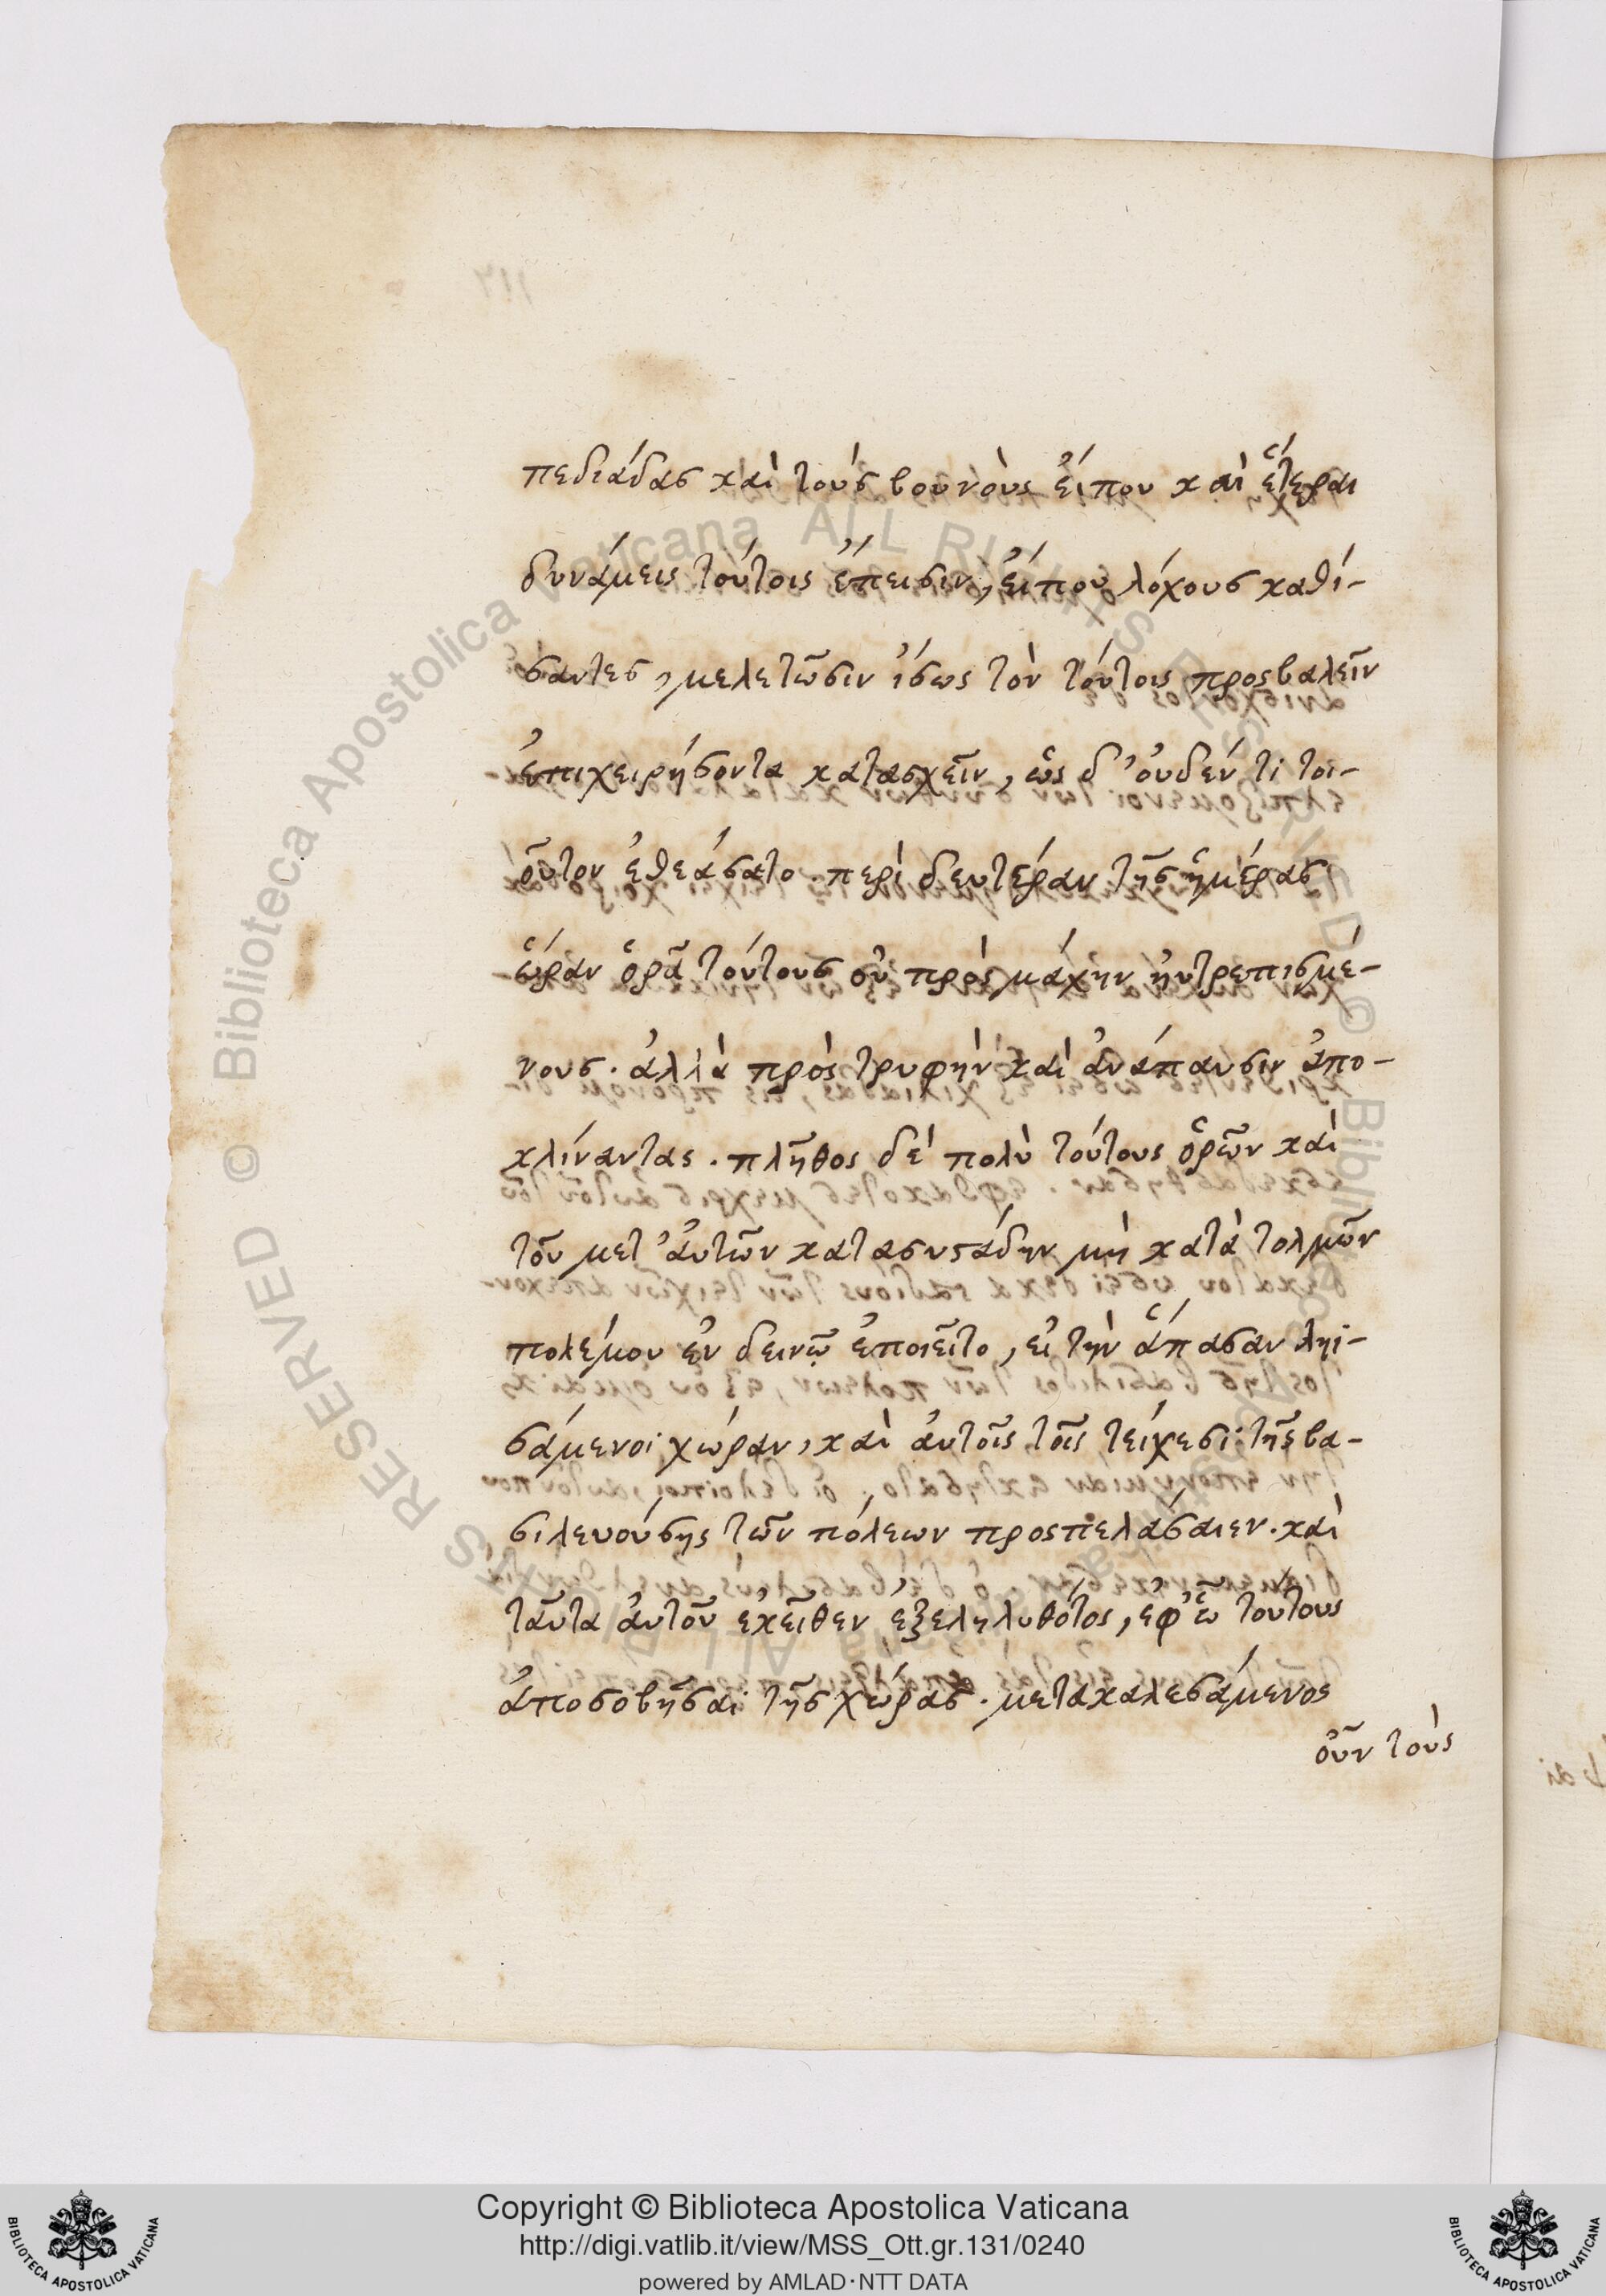 πεδιάδας καὶ τοὺς βουνοὺς εἴπου καὶ ἕτεραι
δυνάμεις τούτοις ἔπεισιν, εἴπου λόχους καθί-
σαντες, μελετῶσιν ἴσως τὸν τούτοις προσβαλεῖν
ἐπιχειρήσοντα κατασχεῖν, ὡς δ' οὐδέν τι τοι-
οῦτον ἐθεάσατο. περὶ δευτέραν τῆς ἡμέρας
ὥραν ὁρᾶ τούτους οὐ πρὸς μάχην ηὐτρεπισμέ-
νους. ἀλλὰ πρὸς τρυφὴν καὶ ἀνάπαυσιν ἀπο-
κλίναντας. πλῆθος δὲ πολὺ τούτους ὁρῶν καὶ
τοῦ μετ' αὐτῶν κατασυστάδην μὴ κατὰ τολμῶν
πολέμου ἐν δεινῷ ἐποιεῖτο, εἰ τὴν ἅπασαν ληϊ-
σάμενοι χώραν, καὶ αὐτοῖς τοῖς τείχεσι τῆς βα-
σιλευούσης τῶν πόλεων προσπελάσαιεν. καὶ
ταῦτα αὐτοῦ ἐκεῖθεν ἐξεληλυθότος, ἐφ' ᾧ τούτους
ἀποσοβῆσαι τῆς χώρας. μετακαλεσάμενος
οὖν τοὺς
© Biblioteca Apostolica Vaticana ALL RIGHTS RESERVED © Biblioteca Apostolica Vaticana ALL RIGHTS RESERVED
Copyright © Biblioteca Apostolica Vaticana
http://digi.vatlib.it/view/MSS_Ott.gr.131/0240
powered by AMLAD·NTT DATA
BIBLIOTECA APOSTOLICA VATICANA
BIBLIOTECA APOSTOLICA VATICANA